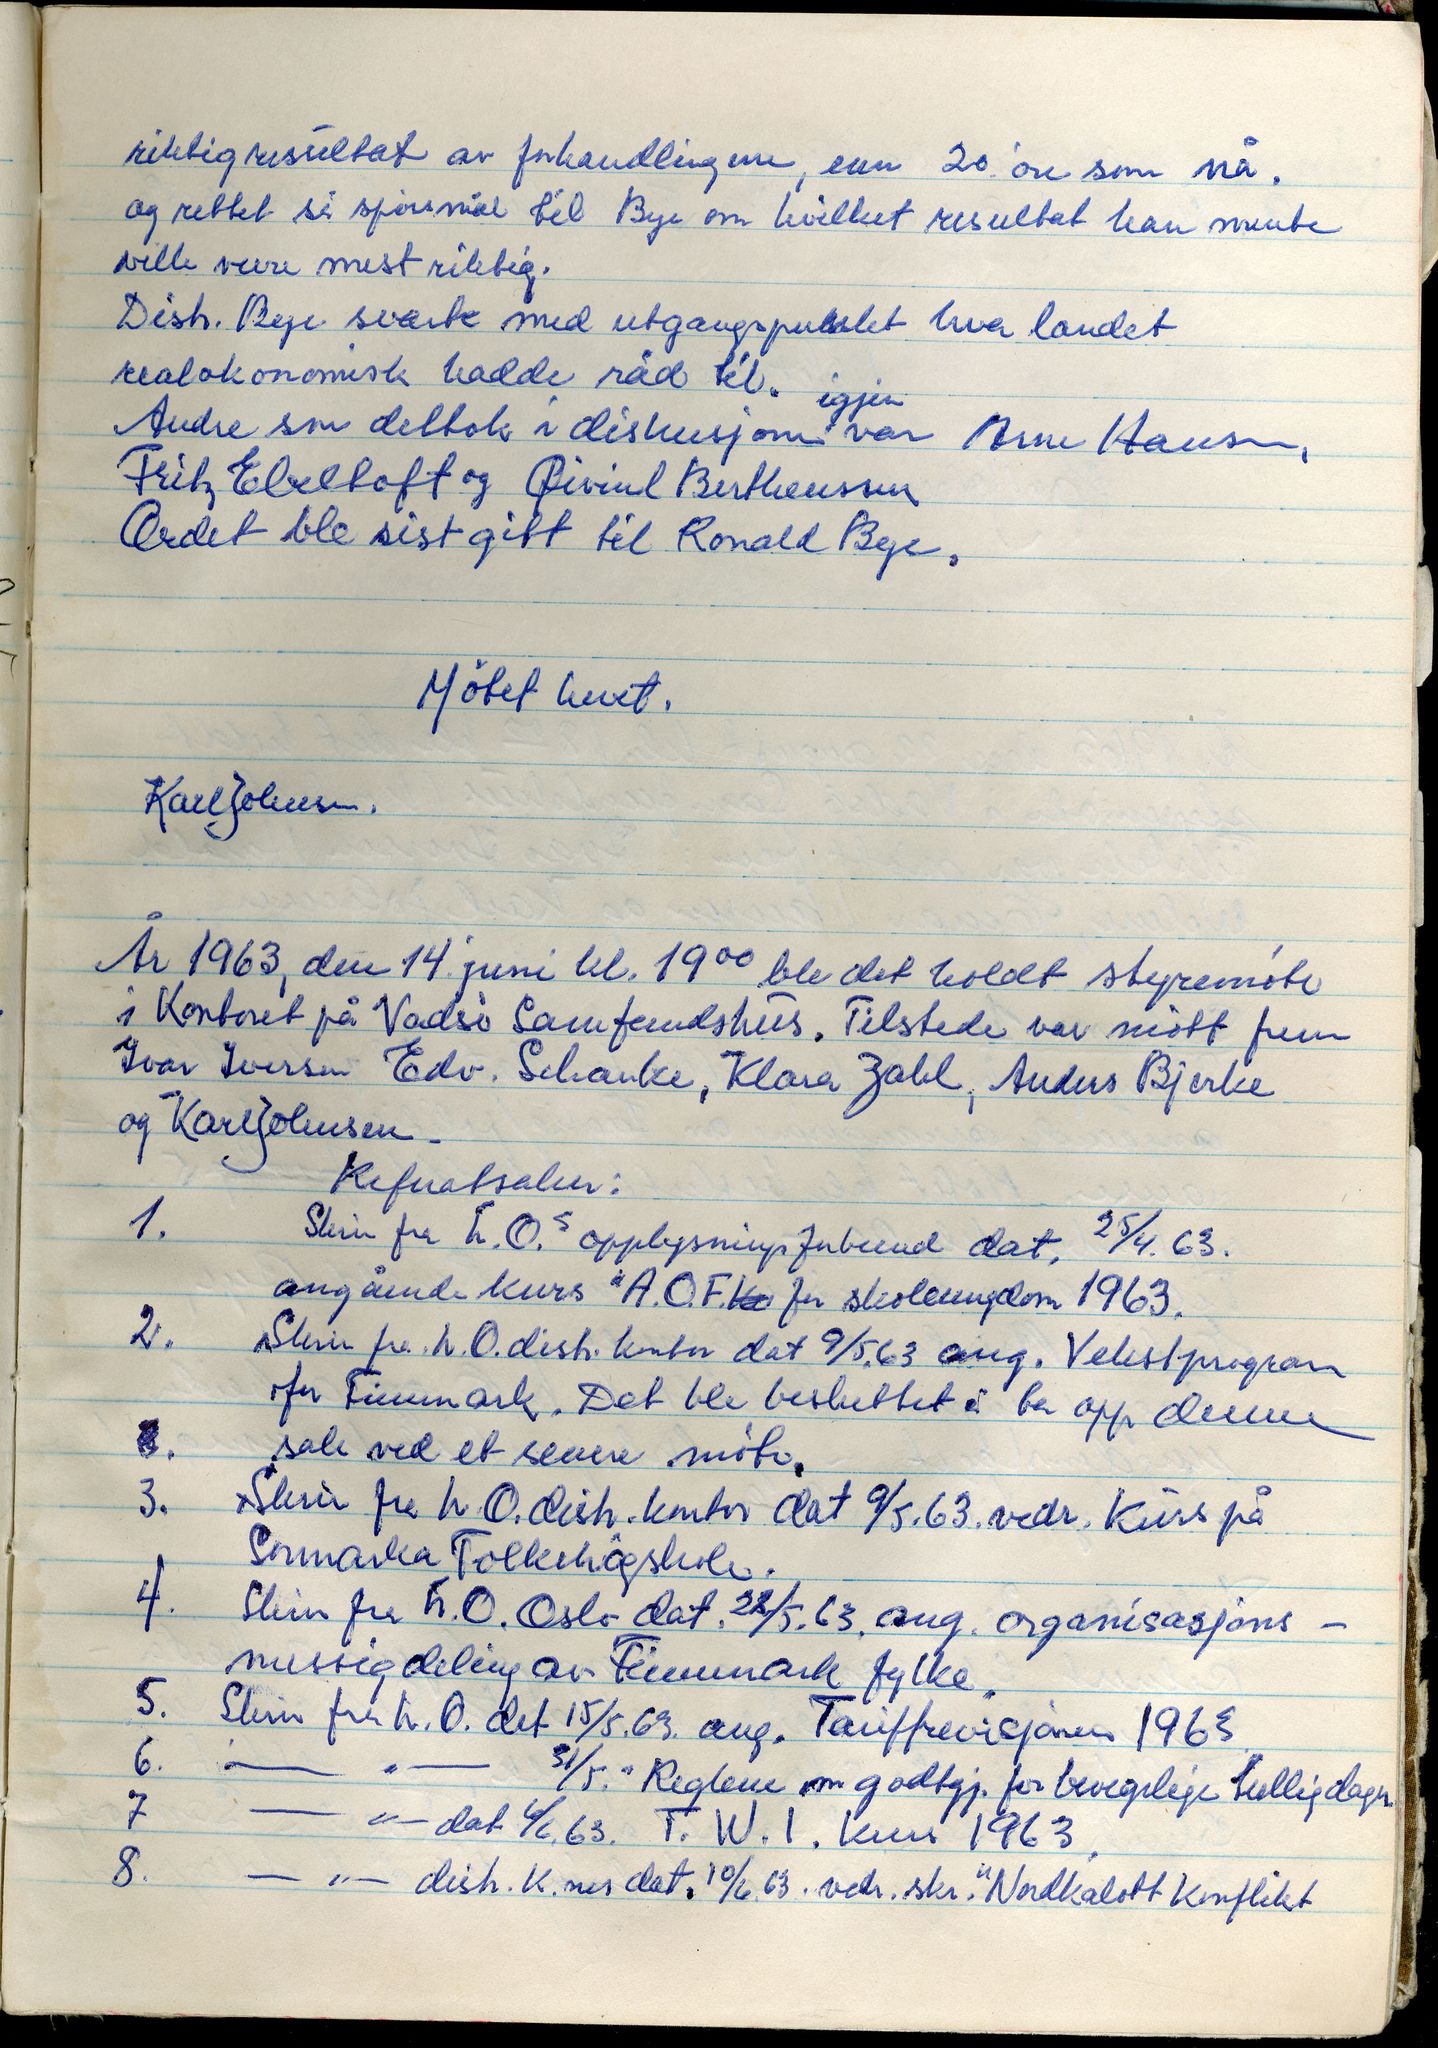 riktig resultat av forhandlingene, enn 20 öre som nå.
og rettet så spörsmål til Bye om hvilket resultat han mente
ville være mest riktig.
Distr. Bye svarte med utgangspunktet hva landet
realokonomisk hadde råd til.
igjen
Andre som deltok i diskusjonen var Arne Hansen,
Fritz Ebeltoft og Øivind Berthenssen
Ordet ble sist gitt til Ronald Bye.
Mötet hevet.
Karl Johnsen.
År 1963, den 14 juni kl. 19⁰⁰ ble det holdt styremöte
i Kontoret på Vadsö Samfundshus. Tilstede var mött frem
Ivar Iversen Edv. Schanke, Klara Zahl, Anders Bjerke
og Karl Johnsen
Referatsaker:
1. Skriv fra L.O.s opplysningsforbund dat. 25/4.63.
angående kurs "A.O.F. for skoleungdom 1963.
2. Skriv fra L.O. distr. kontor dat 9/5.63 ang. Vekstprogram
for Finnmark. Det ble besluttet å ta opp denne
sak ved et senere möte.
3. Skriv fra L.O. distr. kontor dat 9/5.63. vedr. Kurs på
Sormarka Folkehögskole.
4. Skriv fra L.O. Oslo dat. 22/5.63. ang. organisasjons-
messig deling av Finnmark fylke.
5. Skriv fra L.O. dat 15/5.63. ang. Tariffrevisjonen 1963
6. — " — 31/5. " Reglene om godtgj. for bevegelige helligdager.
7 — " — dat 4/6.63. T.W.I. kurs 1963.
8. — " — distr. k. nes dat. 10/6.63. vedr. skr. "Nordkalott Konflikt